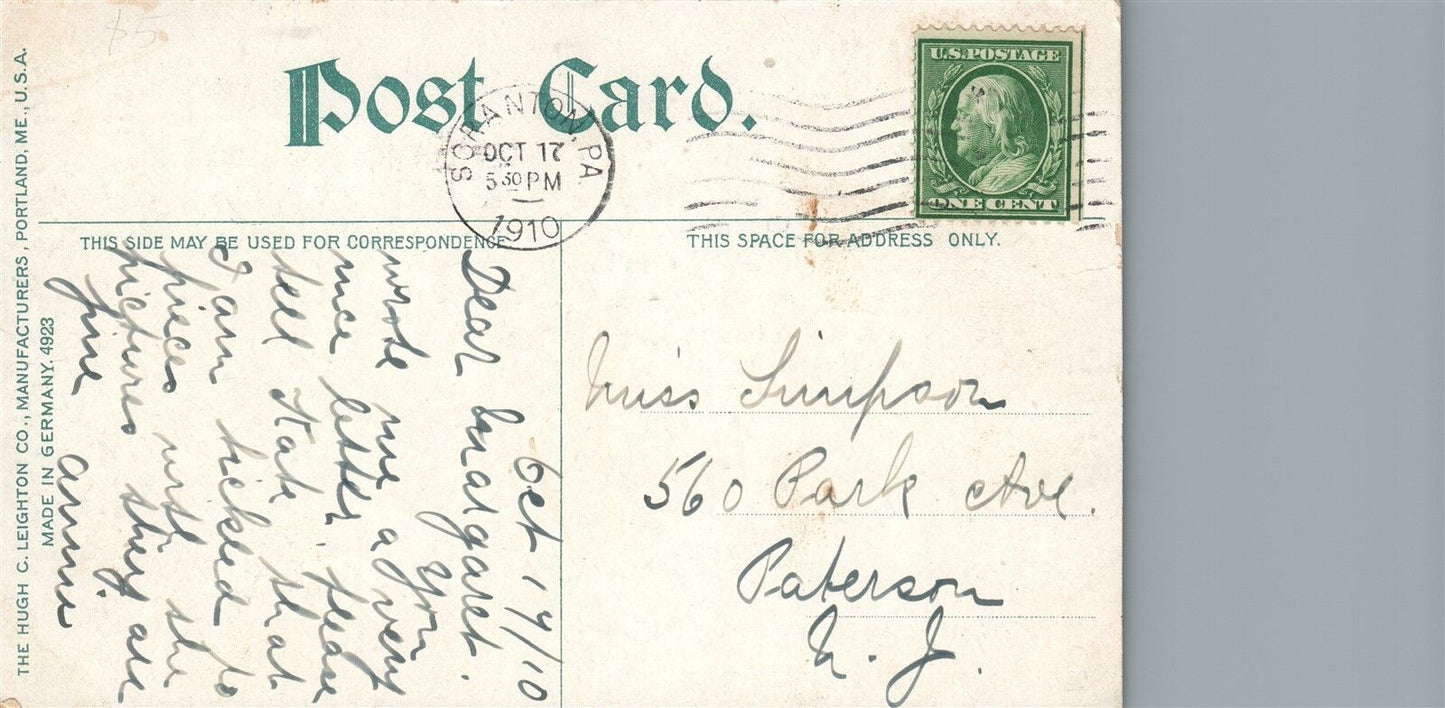 $5
Post Card.
SCRANTON, PA
OCT 17
5 30 PM
1910
U.S. POSTAGE
ONE CENT
THIS SIDE MAY BE USED FOR CORRESPONDENCE
THIS SPACE FOR ADDRESS ONLY.
THE HUGH C. LEIGHTON CO., MANUFACTURERS, PORTLAND, ME., U.S.A.
MADE IN GERMANY. 4923
Oct 17/10
Dear Margaret.
You
wrote me a very
nice letter. please
tell Kate that
I am tickled to
pieces with the
pictures they are
fine
Annie
Miss Simpson
560 Park Ave.
Paterson
N. J.